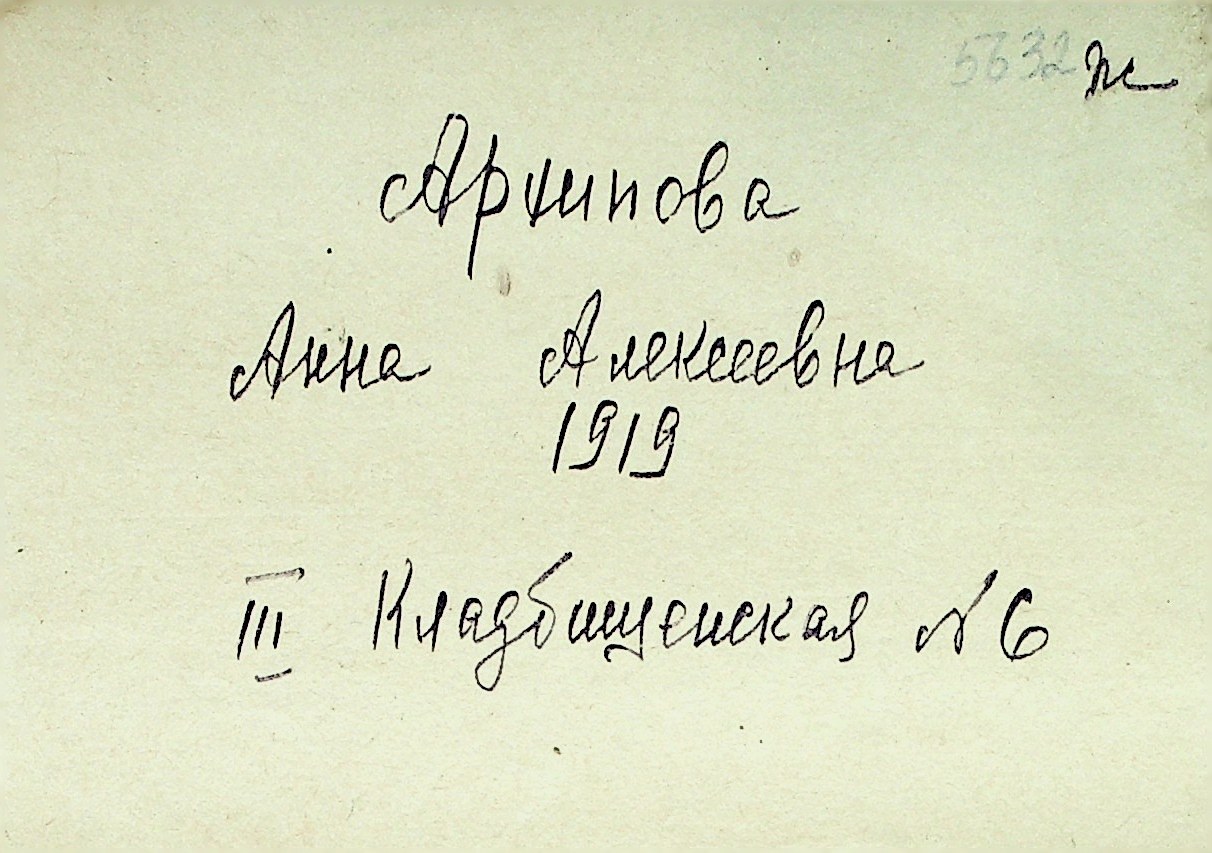 5632
Архипова
Анна Алексеевна
1919
III Кладбищенская № 6